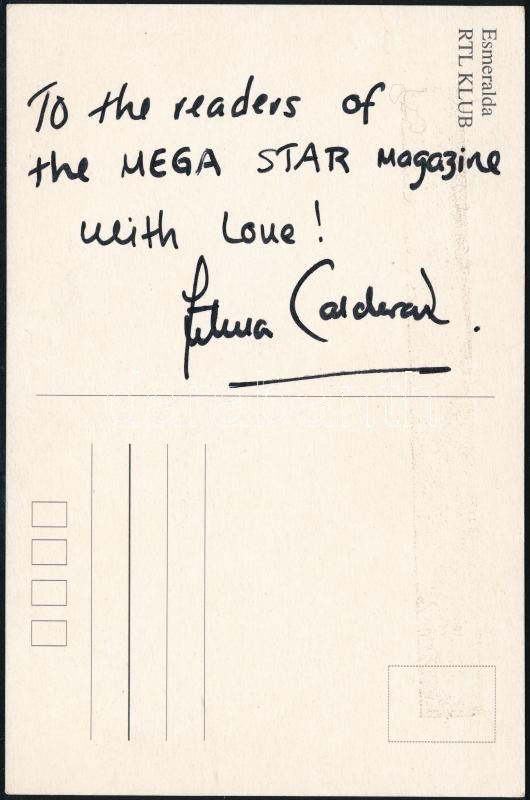 Esmeralda
RTL KLUB
To the readers of
the MEGA STAR Magazine
with Love!
Calderón.
darabanth